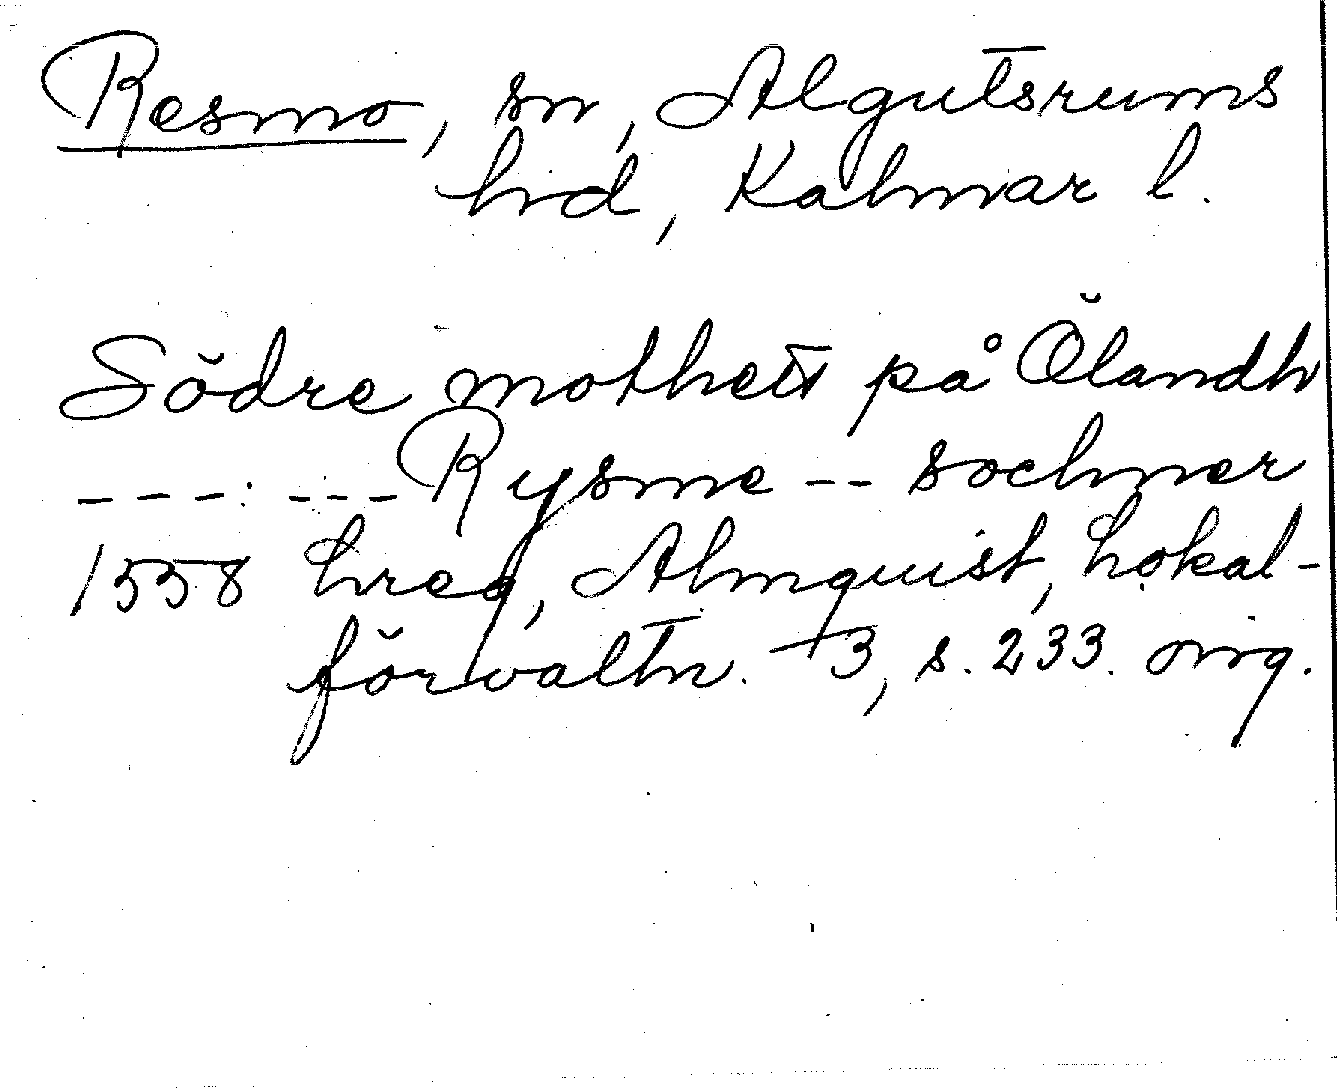 Resmo, sn, Algutsrums
hd, Kalmar l.
Södre mothett på Ölandh
--- --- Rysme -- sochner
1558 hreg, Almquist, Lokal-
förvaltn. 3, s. 233. orig.